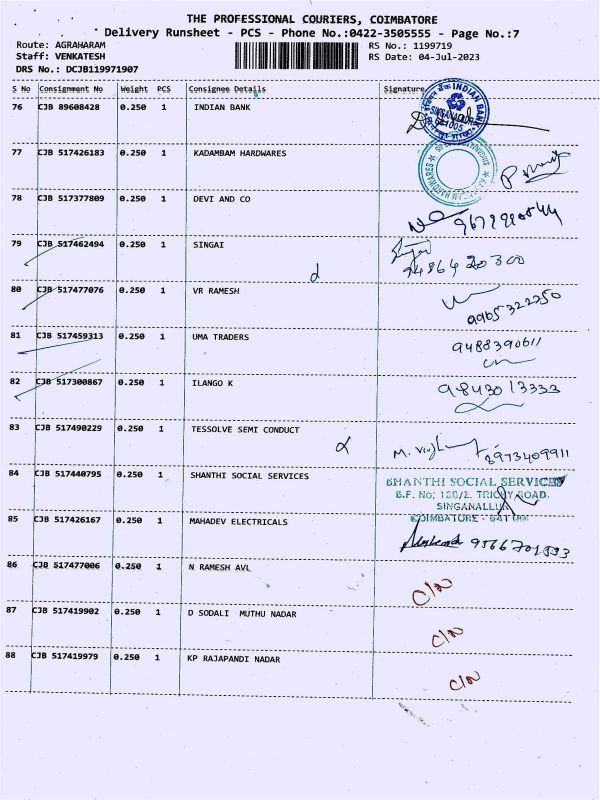 THE PROFESSIONAL COURIERS, COIMBATORE
Delivery Runsheet - PCS - Phone No.:0422-3505555 - Page No.:7
Route: AGRAHARAM RS No.: 1199719
Staff: VENKATESH RS Date: 04-Jul-2023
DRS No.: DCJB119971907
S No Consignment No Weight PCS Consignee Details Signature
76 CJB 89608428 0.250 1 INDIAN BANK
INDIAN BANK
77 CJB 517426183 0.250 1 KADAMBAM HARDWARES
78 CJB 517377809 0.250 1 DEVI AND CO
79 CJB 517462494 0.250 1 SINGAI
9486420300
80 CJB 517477076 0.250 1 VR RAMESH
9965322250
81 CJB 517459313 0.250 1 UMA TRADERS
9488390611
82 CJB 517300867 0.250 1 ILANGO K
9843013333
83 CJB 517490229 0.250 1 TESSOLVE SEMI CONDUCT
8973409911
84 CJB 517440795 0.250 1 SHANTHI SOCIAL SERVICES
SHANTHI SOCIAL SERVICES
SINGANALLUR
85 CJB 517426167 0.250 1 MAHADEV ELECTRICALS
86 CJB 517477006 0.250 1 N RAMESH AVL
C/N
87 CJB 517419902 0.250 1 D SODALI MUTHU NADAR
C/N
88 CJB 517419979 0.250 1 KP RAJAPANDI NADAR
C/N